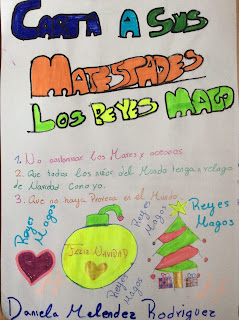 CARTA A SUS
MAJESTADES
LOS REYES MAGO
1. No contaminar los Mares y océanos
2. Que todos los niños del Mundo tengan
de Navidad Como yo.
3. Que no haya en el Mundo
Reyes
Magos
FELIZ NAVIDAD
Reyes
Magos
Reyes
Magos
Reyes
Magos
Daniela Melendez Rodriguez